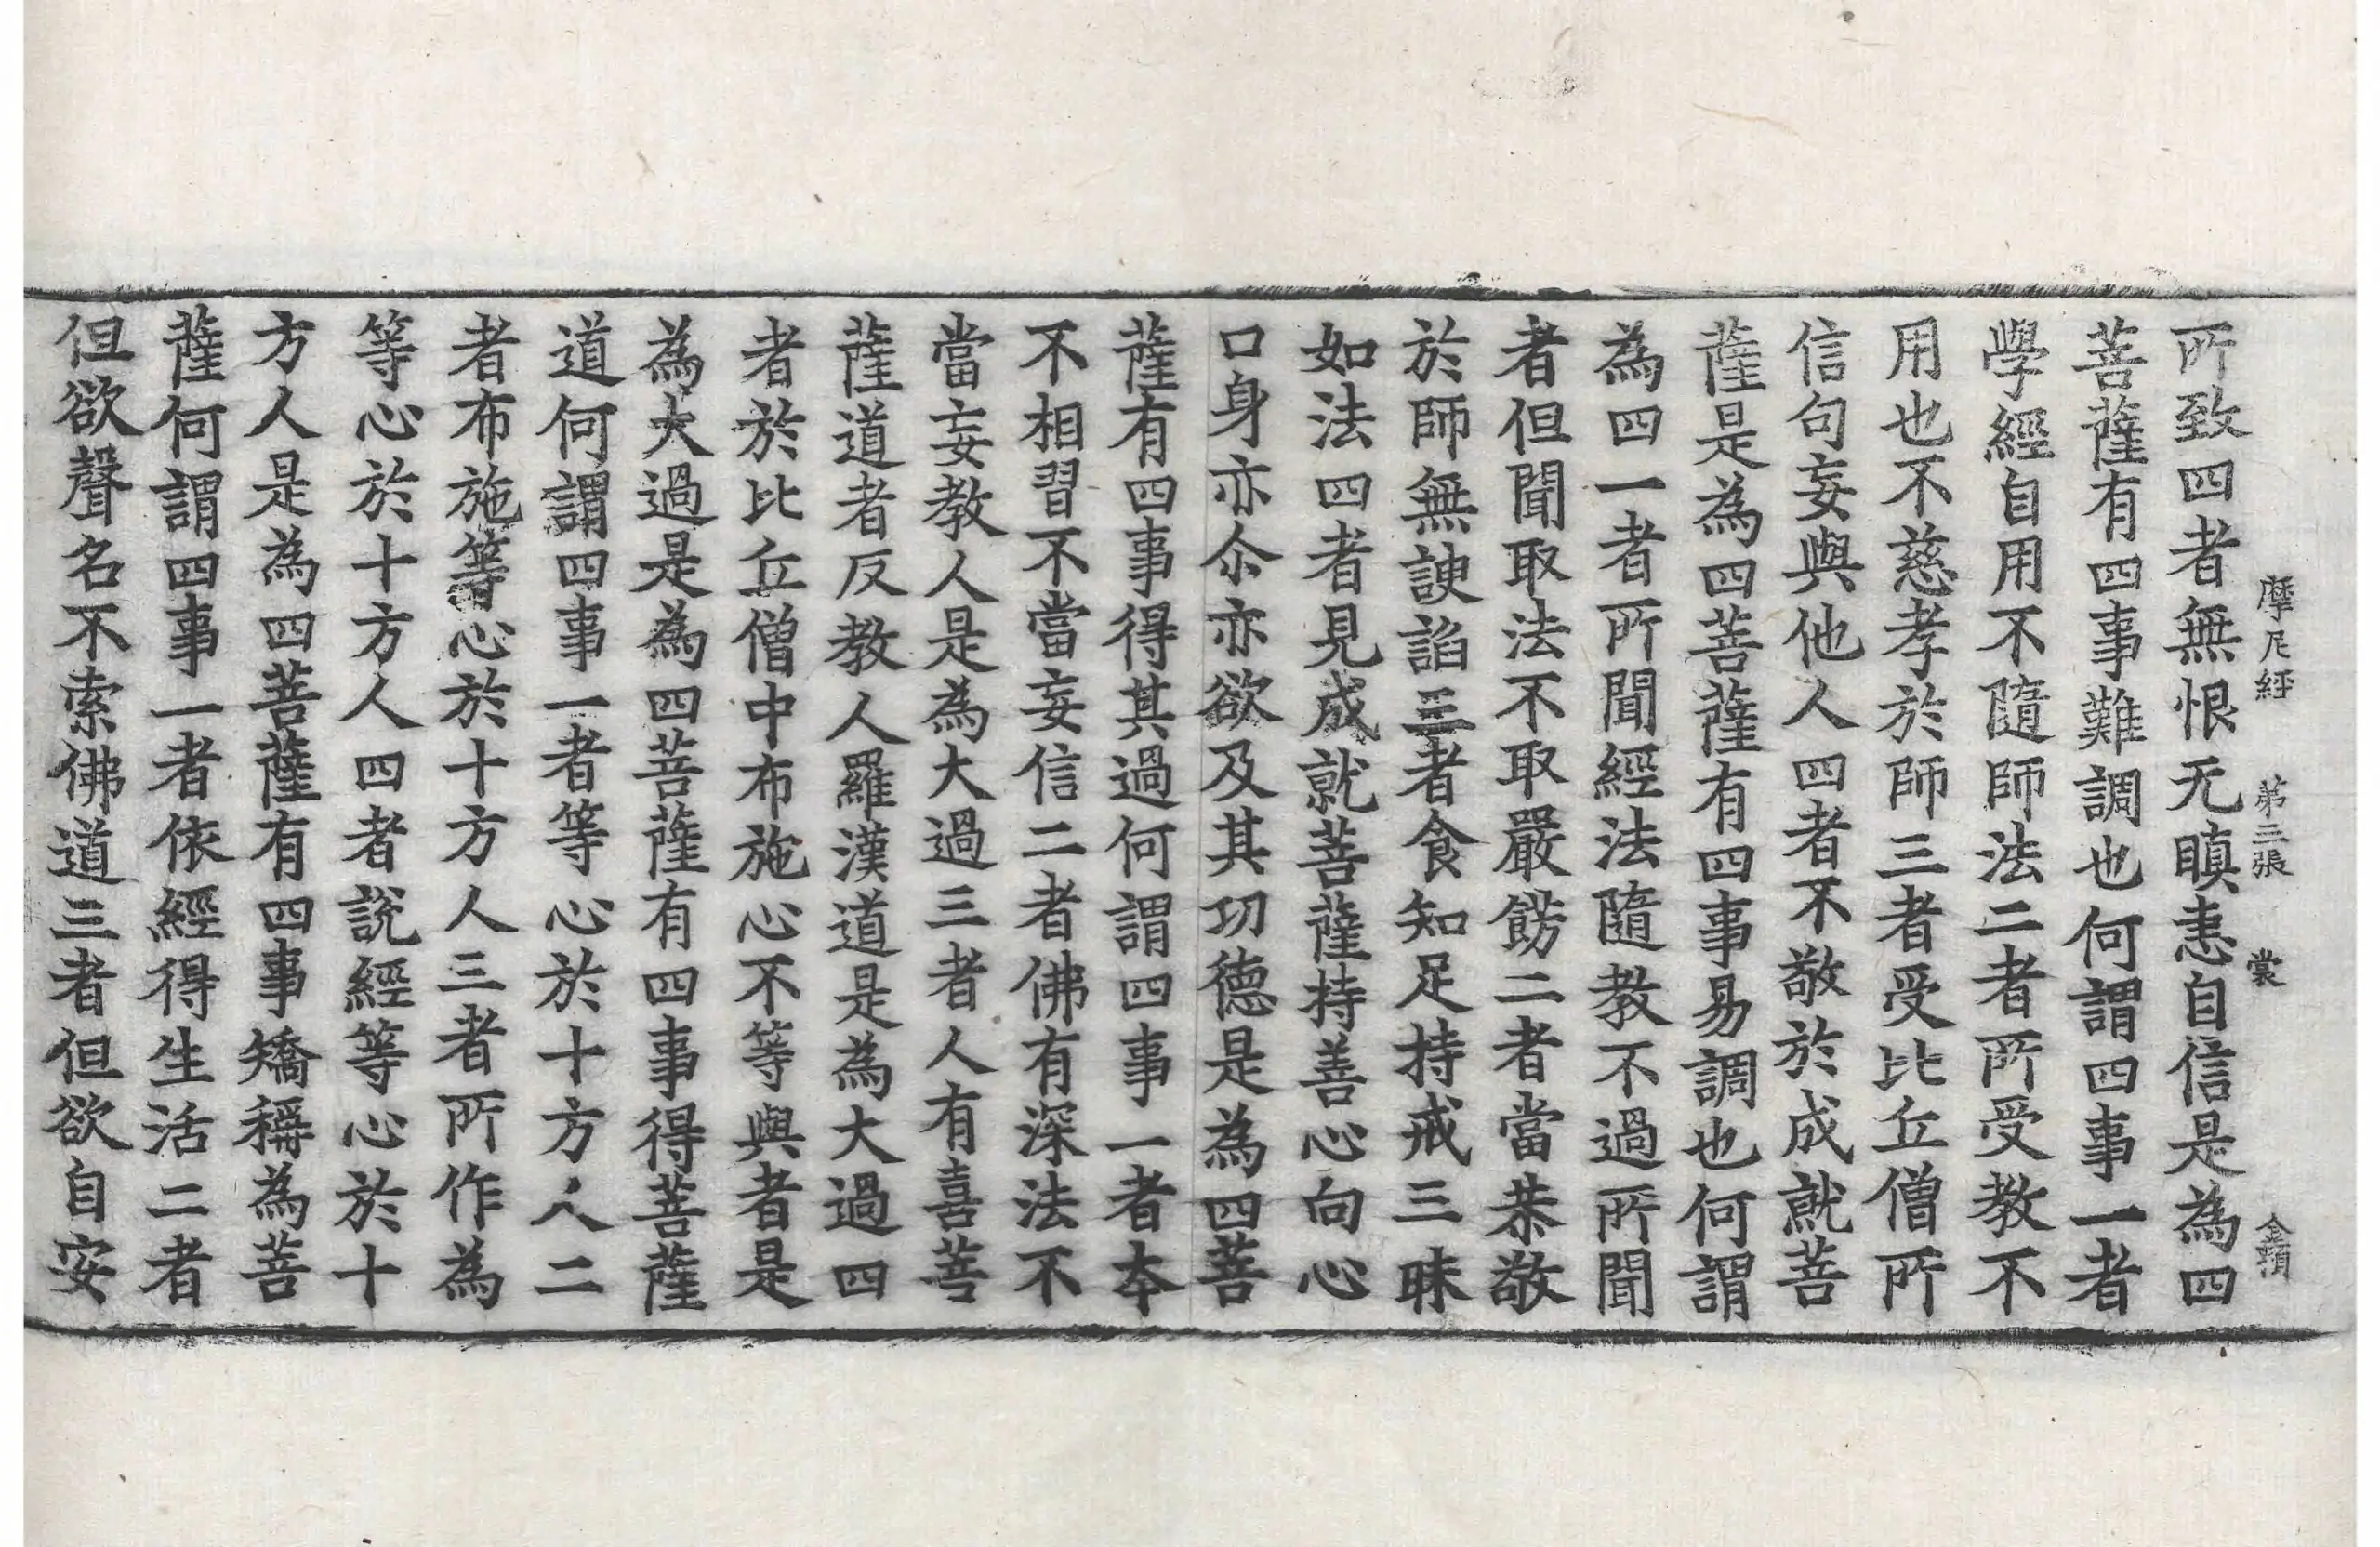 摩尼經 第三張 裳
所致四者無恨无瞋恚自信是為四
菩薩有四事難調也何謂四事一者
學經自用不隨師法二者所受教不
用也不慈孝於師三者受比丘僧所
信句妄與他人四者不敬於成就菩
薩是為四菩薩有四事易調也何謂
為四一者所聞經法隨教不過所聞
者但聞取法不取嚴餝二者當恭敬
於師無諛諂三者食知足持戒三昧
如法四者見成就菩薩持善心向心
口身亦尒亦欲及其功德是為四菩
薩有四事得其過何謂四事一者夲
不相習不當妄信二者佛有深法不
當妄教人是為大過三者人有喜菩
薩道者反教人羅漢道是為大過四
者於比丘僧中布施心不等與者是
為大過是為四菩薩有四事得菩薩
道何謂四事一者等心於十方人二
者布施等心於十方人三者所作為
等心於十方人四者說經等心於十
方人是為四菩薩有四事矯稱為菩
薩何謂四事一者依經得生活二者
但欲聲名不索佛道三者但欲自安